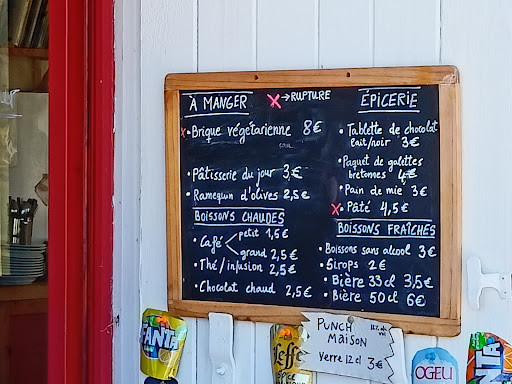 À MANGER
x → RUPTURE
x • Brique végétarienne 8€
• Pâtisserie du jour 3€
• Ramequin d'olives 2,5€
BOISSONS CHAUDES
• Café < petit 1,5€
grand 2,5€
• Thé / infusion 2,5€
• Chocolat chaud 2,5€
ÉPICERIE
• Tablette de chocolat
lait/noir 3€
• Paquet de galettes
bretonnes 4€
• Pain de mie 3€
x • Pâté 4,5€
BOISSONS FRAÎCHES
• Boissons sans alcool 3€
• Sirops 2€
• Bière 33cl 3,5€
• Bière 50cl 6€
PUNCH
MAISON
Verre 12cl 3€
FANTA
Leffe
OGEU
FANTA